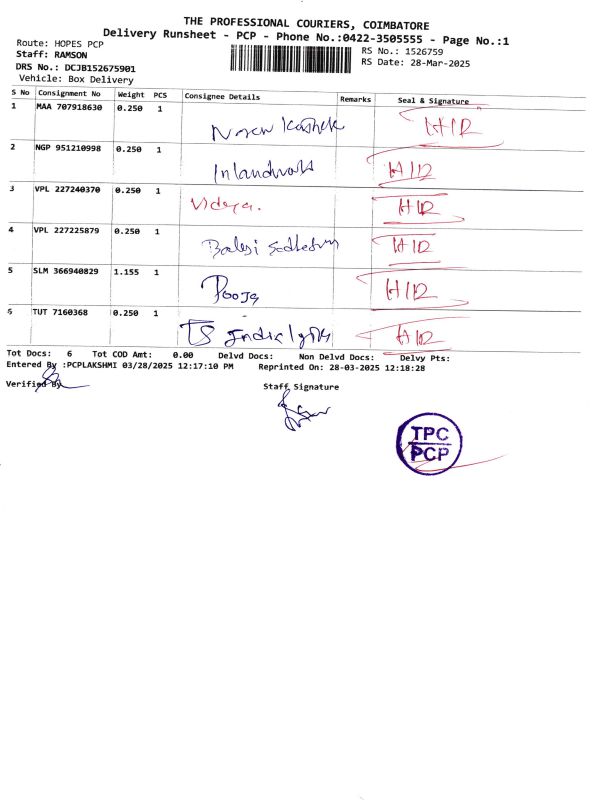 THE PROFESSIONAL COURIERS, COIMBATORE
Delivery Runsheet - PCP - Phone No.:0422-3505555 - Page No.:1
Route: HOPES PCP
Staff: RAMSON
DRS No.: DCJB152675901
Vehicle: Box Delivery
RS No.: 1526759
RS Date: 28-Mar-2025
S No Consignment No Weight PCS Consignee Details Remarks Seal & Signature
1 MAA 707918630 0.250 1 H/R
2 NGP 951210998 0.250 1 H/R
3 VPL 227240370 0.250 1 Vidya. H/R
4 VPL 227225879 0.250 1 H/R
5 SLM 366940829 1.155 1 Pooja H/R
6 TUT 7160368 0.250 1 H/R
Tot Docs: 6 Tot COD Amt: 0.00 Delvd Docs: Non Delvd Docs: Delvy Pts:
Entered By :PCPLAKSHMI 03/28/2025 12:17:10 PM Reprinted On: 28-03-2025 12:18:28
Verified By
Staff Signature
TPC
PCP